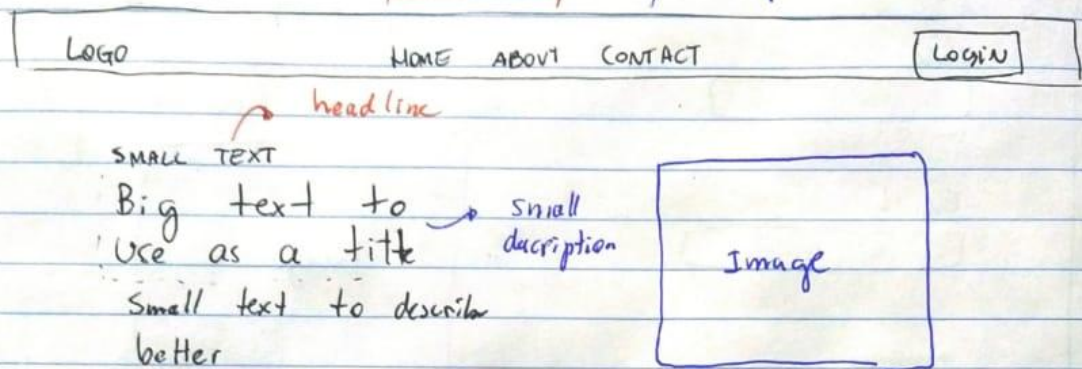 LOGO HOME ABOUT CONTACT LOGIN
headline
SMALL TEXT
Big text to
use as a title
small
dacription
Small text to describe
better
Image